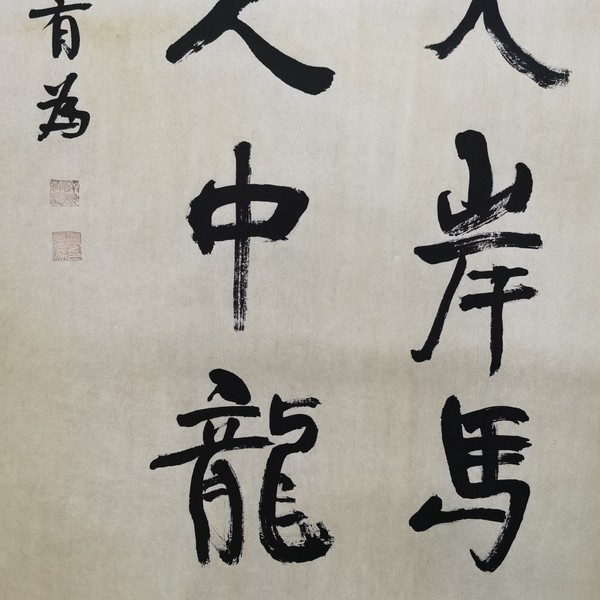 天岸馬
人中龍
有為